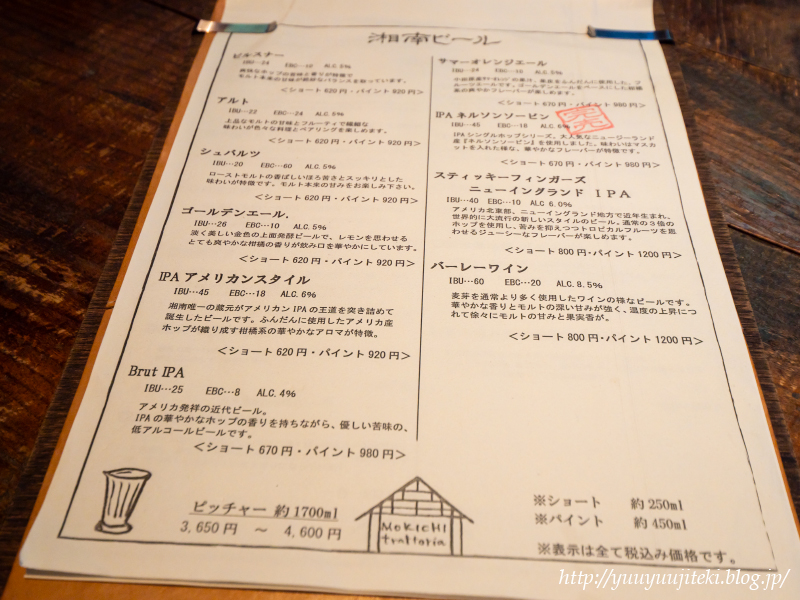 湘南ビール
ピルスナー
IBU…24 EBC…10 ALC.5%
爽快なホップの苦味と香りが特徴で
モルト本来の甘味が絶妙なバランスを保っています。
<ショート 620円・パイント 920円>
アルト
IBU…22 EBC…24 ALC.5%
上品なモルトの甘味とフルーティで繊細な
味わいが色々な料理とペアリングを楽しめます。
<ショート 620円・パイント 920円>
シュバルツ
IBU…20 EBC…60 ALC.5%
ローストモルトの香ばしいほろ苦さとスッキリとした
味わいが特徴です。モルト本来の甘みをお楽しみ下さい。
<ショート 620円・パイント 920円>
ゴールデンエール.
IBU…26 EBC…10 ALC.5%
淡く美しい金色の上面発酵ビールで、レモンを思わせる
とても爽やかな柑橘の香りが飲み口を華やかにしています。
<ショート 620円・パイント 920円>
IPA アメリカンスタイル
IBU…45 EBC…18 ALC.6%
湘南唯一の蔵元がアメリカンIPAの王道を突き詰めて
誕生したビールです。ふんだんに使用したアメリカ産
ホップが織り成す柑橘系の華やかなアロマが特徴。
<ショート 620円・パイント 920円>
Brut IPA
IBU…25 EBC…8 ALC.4%
アメリカ発祥の近代ビール。
IPAの華やかなホップの香りを持ちながら、優しい苦味の、
低アルコールビールです。
<ショート 670円・パイント 980円>
サマーオレンジエール
IBU…24 EBC…10 ALC.5%
フルーツエールです。ゴールデンエールをベースにした柑橘
系の爽やかフレーバーが楽しめます。
<ショート 670円・パイント 980円>
IPA ネルソンソービン
IBU…45 EBC…18 ALC.6%
IPAシングルホップシリーズ。大人気なニュージーランド
産『ネルソンソービン』を使用しました。味わいはマスカ
ットを入れた様な、華やかなフレーバーが特徴です。
<ショート 670円・パイント 980円>
スティッキーフィンガーズ
ニューイングランド IPA
IBU…40 EBC…10 ALC 6.0%
アメリカ北東部、ニューイングランド地方で近年生まれ、
世界的に大流行の新しいスタイルのビール。通常の3倍の
ホップを使用し、苦みを抑えつつトロピカルフルーツを思
わせるジューシーなフレーバーが楽しめます。
<ショート 800円・パイント 1200円>
バーレーワイン
IBU…60 EBC…20 ALC.8.5%
麦芽を通常より多く使用したワインの様なビールです。
華やかな香りとモルトの深い甘みが強く、温度の上昇につ
れて徐々にモルトの甘みと果実香が。
<ショート 800円・パイント 1200円>
ピッチャー 約1700ml
3,650円 ~ 4,600円
MOKICHI
trattoria
※ショート 約250ml
※パイント 約450ml
※表示は全て税込み価格です。
http://yuuyuujiteki.blog.jp/